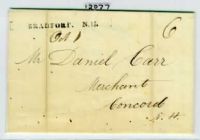 12077
BRADFORD. N.H.
Oct 1
6
Mr Daniel Carr
Merchant
Concord
N. H.